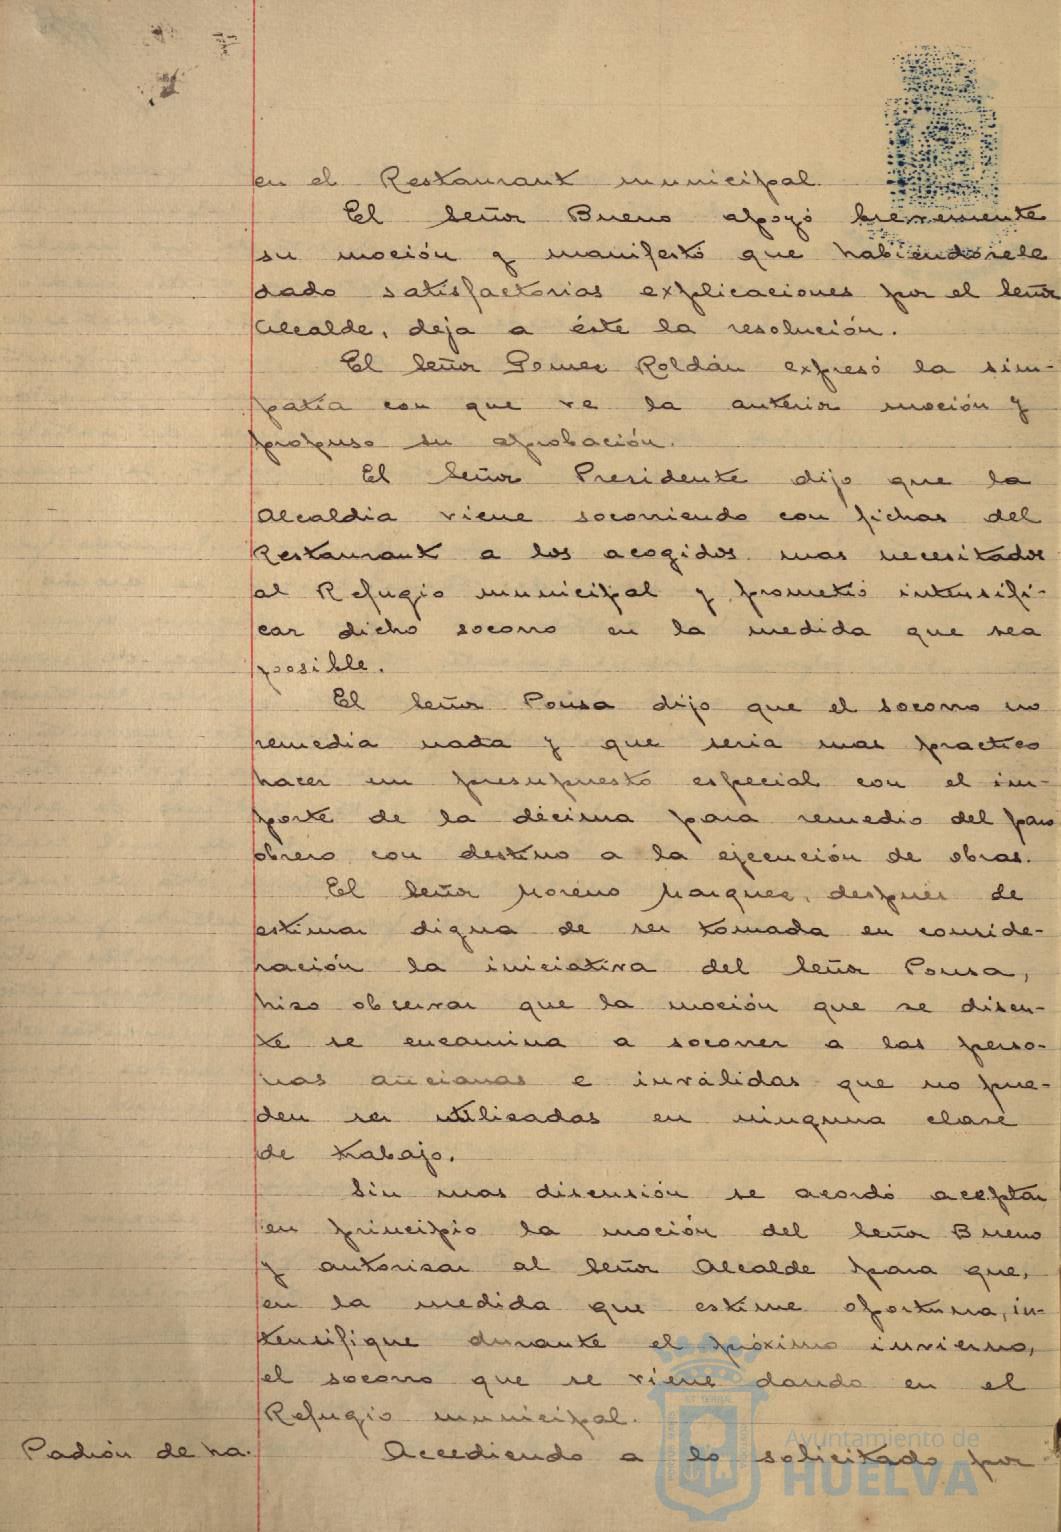 en el Restaurant municipal.
El Señor Bueno apoyó brevemente
su moción y manifestó que habiéndosele
dado satisfactorias explicaciones por el Señor
Alcalde, deja a éste la resolución.
El Señor Gomez Roldán expresó la sim-
patía con que ve la anterior moción y
propuso su aprobación.
El Señor Presidente dijo que la
Alcaldia viene socorriendo con fichas del
Restaurant a los acogidos mas necesitados
al Refugio municipal y prometió intensifi-
car dicho socorro en la medida que sea
posible.
El Señor Pousa dijo que el socorro no
remedia nada y que seria mas practico
hacer un presupuesto especial con el im-
porte de la décima para remedio del paro
obrero con destino a la ejecución de obras.
El Señor Moreno Marquez, despues de
estimar digna de ser tomada en conside-
ración la iniciativa del Señor Pousa,
hizo observar que la moción que se discu-
te se encamina a socorrer a las perso-
nas ancianas e inválidas que no pue-
den ser utilizadas en ninguna clase
de trabajo.
Sin mas discusión se acordó aceptar
en principio la moción del Señor Bueno
y autorizar al Señor Alcalde para que,
en la medida que estime oportuna, in-
tensifique durante el próximo invierno,
el socorro que se viene dando en el
Refugio municipal.
Padrón de ha. Accediendo a lo solicitado por
Ayuntamiento de
HUELVA